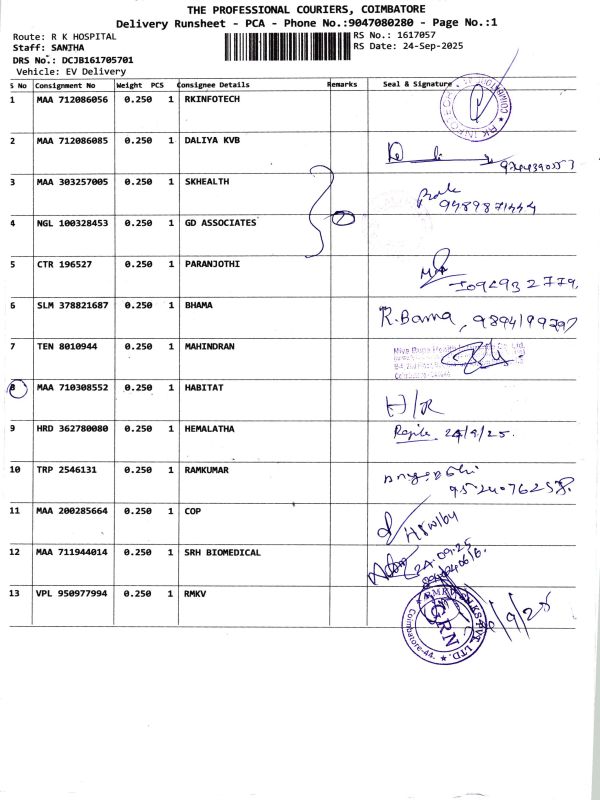 THE PROFESSIONAL COURIERS, COIMBATORE
Delivery Runsheet - PCA - Phone No.:9047080280 - Page No.:1
Route: R K HOSPITAL
RS No.: 1617057
Staff: SANTHA
RS Date: 24-Sep-2025
DRS No.: DCJB161705701
Vehicle: EV Delivery
S No Consignment No Weight PCS Consignee Details Remarks Seal & Signature
1 MAA 712086056 0.250 1 RKINFOTECH
2 MAA 712086085 0.250 1 DALIYA KVB
3 MAA 303257005 0.250 1 SKHEALTH
9489871444
4 NGL 100328453 0.250 1 GD ASSOCIATES
5 CTR 196527 0.250 1 PARANJOTHI
6 SLM 378821687 0.250 1 BHAMA R.Bama, 9894199797
7 TEN 8010944 0.250 1 MAHINDRAN
8 MAA 710308552 0.250 1 HABITAT H/R
9 HRD 362780080 0.250 1 HEMALATHA 24/9/25.
10 TRP 2546131 0.250 1 RAMKUMAR
11 MAA 200285664 0.250 1 COP
12 MAA 711944014 0.250 1 SRH BIOMEDICAL 24.09.25
13 VPL 950977994 0.250 1 RMKV
GRN
Coimbatore-44.